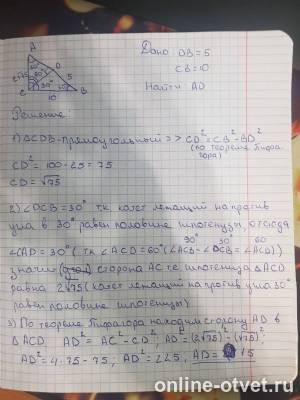 A
Дано DB=5
CB=10
Найти AD
D
5
C
30°
B
10
Решение
1) △CDB-прямоугольный => CD²=CB²-BD²
(по теореме Пифагора)
CD²=100-25=75
CD=√75
2) ∠DCB=30° тк катет лежащий на против
угла в 30° равен половине гипотенузы, отсюда
∠CAD=30° (тк ∠ACD=60° (∠ACB-∠DCB=∠ACD))
90° 30° 60
значит сторона AC т.е гипотенуза △ACD
равна 2√75 (катет лежащий на против угла 30°
равен половине гипотенузы)
3) По теореме Пифагора находим сторону AD в
△ACD AD²=AC²-CD²; AD=(2√75)²-(√75)²
AD²=4·75-75; AD²=225, AD=15
online-otvet.ru